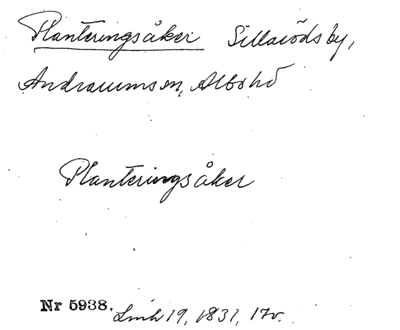 Planteringsåker Sillarödsby,
Andrarums sn, Albo hd
Planteringsåker
Nr 5938. Lmh 19, 1831, 17v.